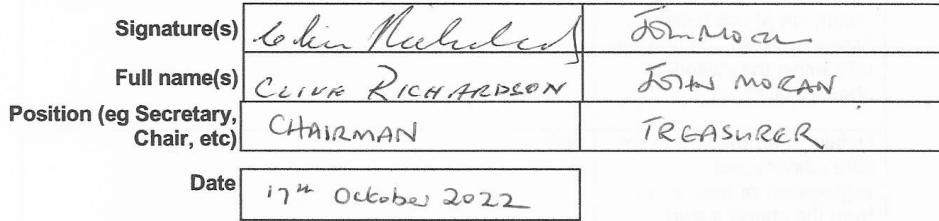 Signature(s) John Moran
Full name(s) CLIVE RICHARDSON JOHN MORAN
Position (eg Secretary,
Chair, etc) CHAIRMAN TREASURER
Date 17th October 2022